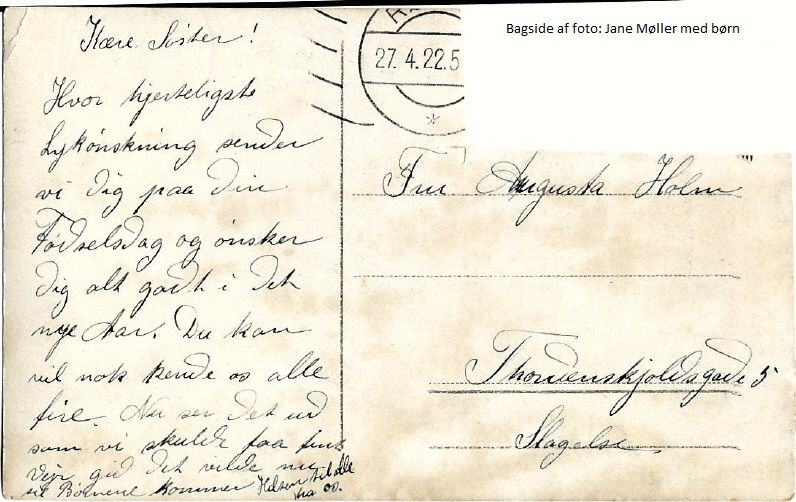 Kære Söster!
Hvor hjerteligste
Lykönskning sender
vi dig paa din
Födselsdag og önsker
dig alt godt i det
nye Aar. Du kan
vil nok kende os alle
fire. Nu ser det ud
som vi skulde faa fint
Vejr gid det vilde nu
til Börnene kommer
Hilsen til alle
fra os.
27.4.22.5
Bagside af foto: Jane Møller med børn
Fru Augusta Holm
Thordenskjoldsgade 5
Slagelse